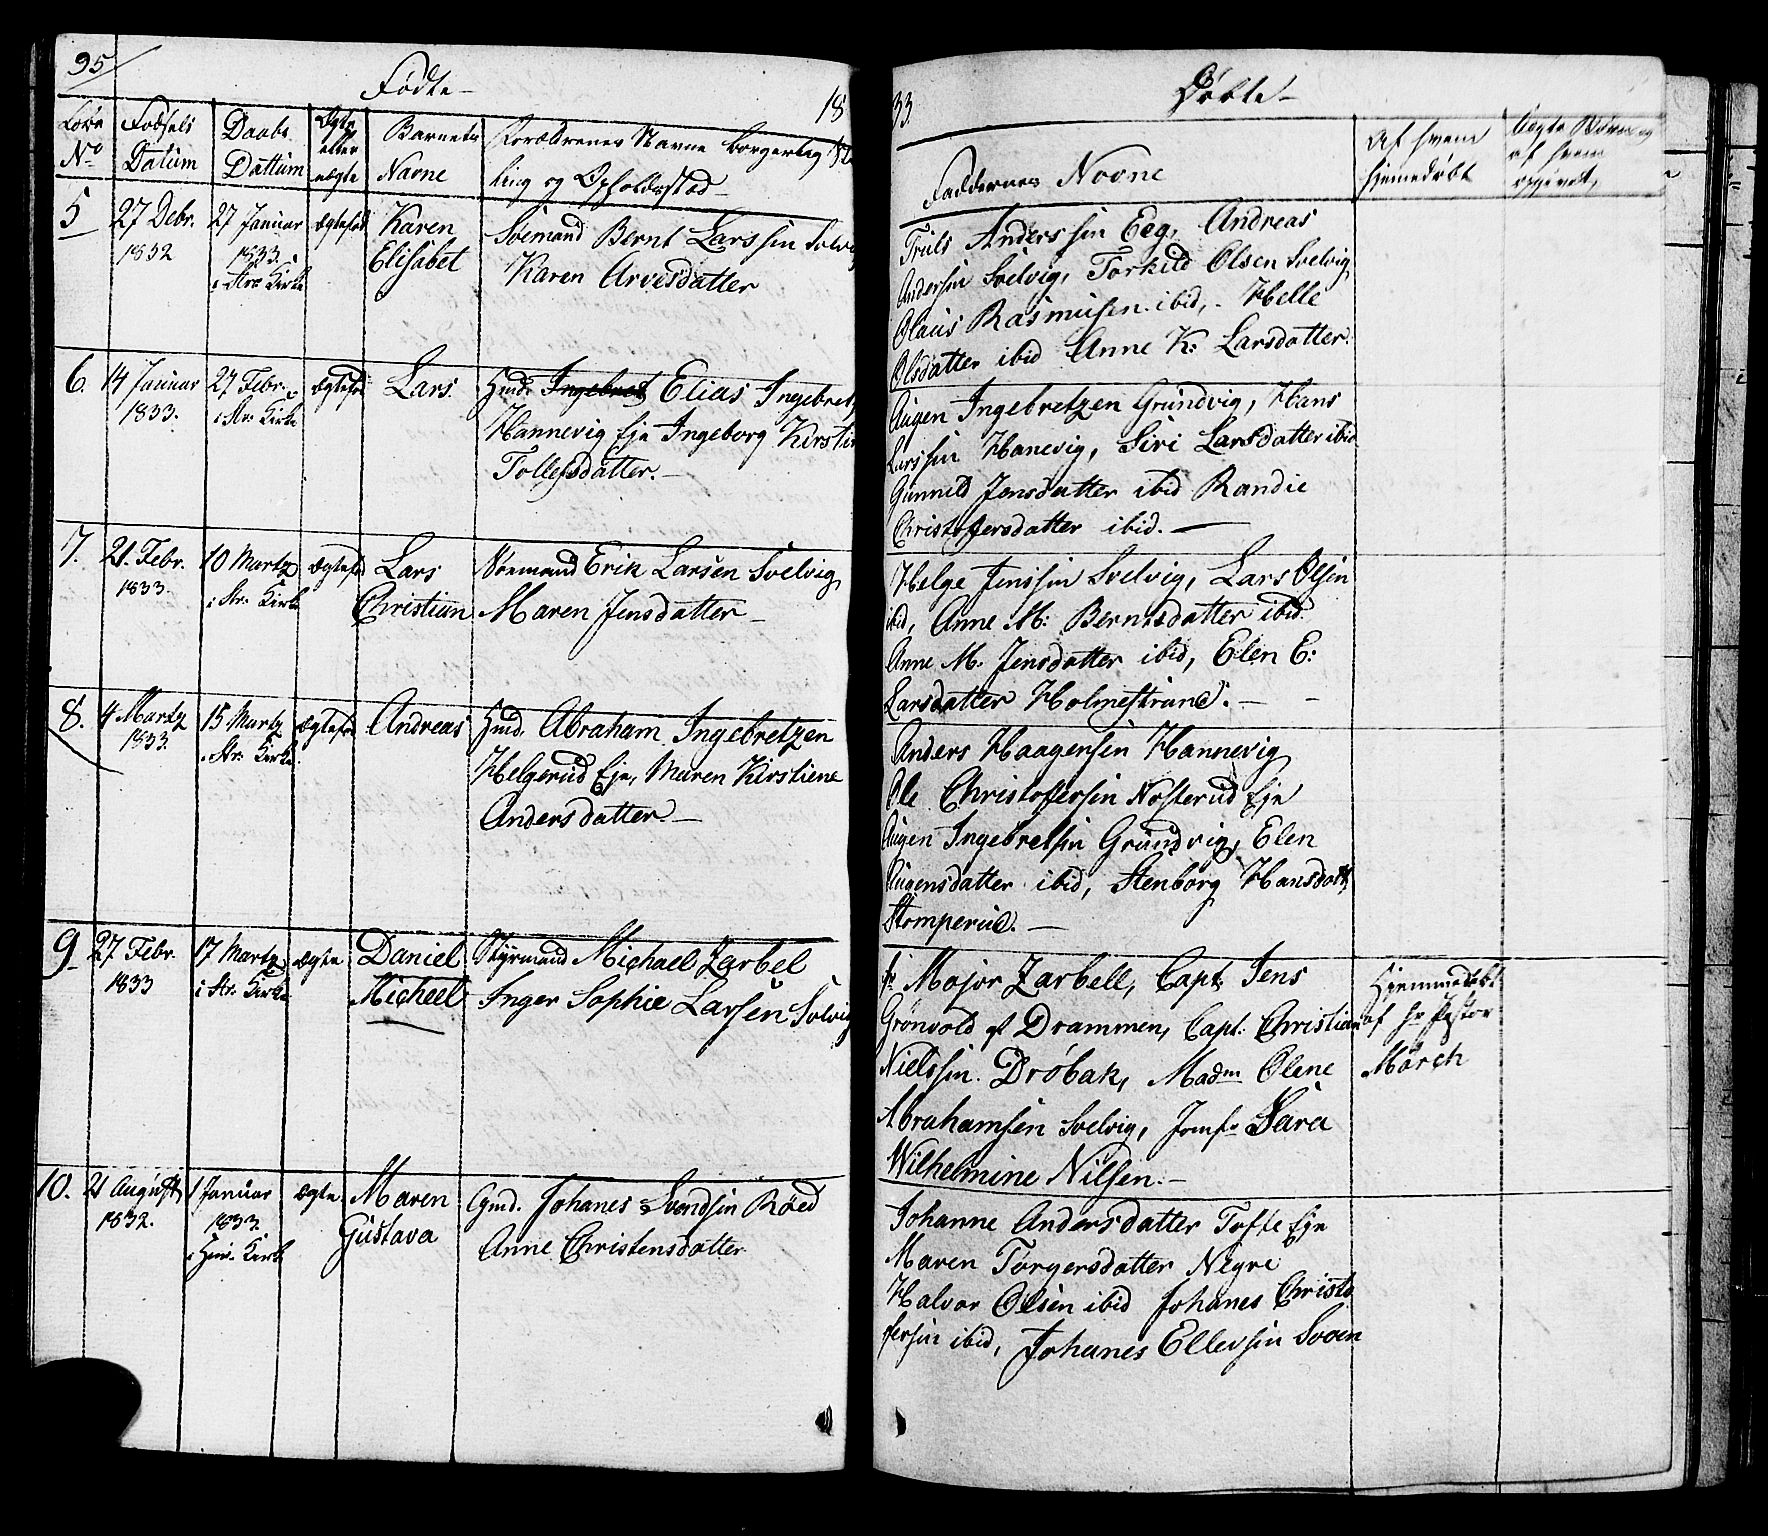 95
Fødte
1833
Døbte
Løbe No
Fødsels Datum
Daabs Dattum
Ægte eller uægte
Barnets Navne
Forældrenes Navne borgerlig
ling og Opholdsstæd
Faddernes Navne
Af hvem hjemedøbt
Uægte Børn og af hvem opgivet,
5
27 Debr. 1832
27 Januar 1833. i Str: Kirke
ægtefød
Karen Elisabet
Søemand Bernt Larssen Svelvig
Karen Arvesdatter
Truls Anderssen Eeg, Andreas
Andersen Svelvig, Torkild Olsen Svelvig,
Olaus Rasmusen ibid, Helle
Olsdatter ibid Anne K: Larsdatter.
6.
14 Januar 1833.
27 Febr. i Str: Kirke
ægtefød
Lars.
Hmd: Ingebret Elias Ingebretz
Hannevig Eje Ingeborg Kirstin
Tollefsdatter.
Augen Ingebretzen Grundvig, Hans
Larssen Hanevig, Siri Larsdatter ibid
Gunnild Jensdatter ibid Randie
Christofersdatter ibid.
7.
21. Febr. 1833.
10 Martz i Str: Kirke
ægtefød
Lars Christian
Erik Larsen Svelvig
Maren Jensdatter
Helge Jenssen Svelvig, Lars Olsen
ibid, Anne M: Berntsdatter ibid.
Anne M. Jensdatter ibid, Elen E:
Larsdatter Holmestrand.
8.
4 Martz 1833.
15 Martz i Str: Kirke
ægtefød
Andreas
Hmd. Abraham Ingebretzen
Helgerud Eje, Maren Kirstiene
Andersdatter
Anders Haagensen Hannevig
Ole Christofersen Nosterud Eje
Augen Ingebretsen Grundvig, Elen
Augensdatter ibid, Stenborg Hansdatt,
Stomperud.
9
27 Febr. 1833
17 Martz i Str: Kirke
ægte
Daniel Micheel
Styrmand Michael Zarbel
Inger Sophie Larsen Svelvig
hr Major Zarbell, Capt Jens
Grønvold af Drammen, Capt. Christian
Nielssen Drøbak, Madm Olene
Abrahamsen Svelvig, Jomfr Sara
Wilhelmine Nilsen.
Hjemmedøbt
af Hr Pastor
Mørch
10.
21 August 1832.
1 Januar 1833. i Hur. Kirke
ægte
Maren Gustava
Gmd. Johanes Svendsen Røed
Anne Christensdatter
Johanne Andersdatter Tofte Eje
Maren Torgersdatter Negre
Halvor Olsen ibid Johanes Christo
fersen ibid, Johanes Ellevsen Svoen